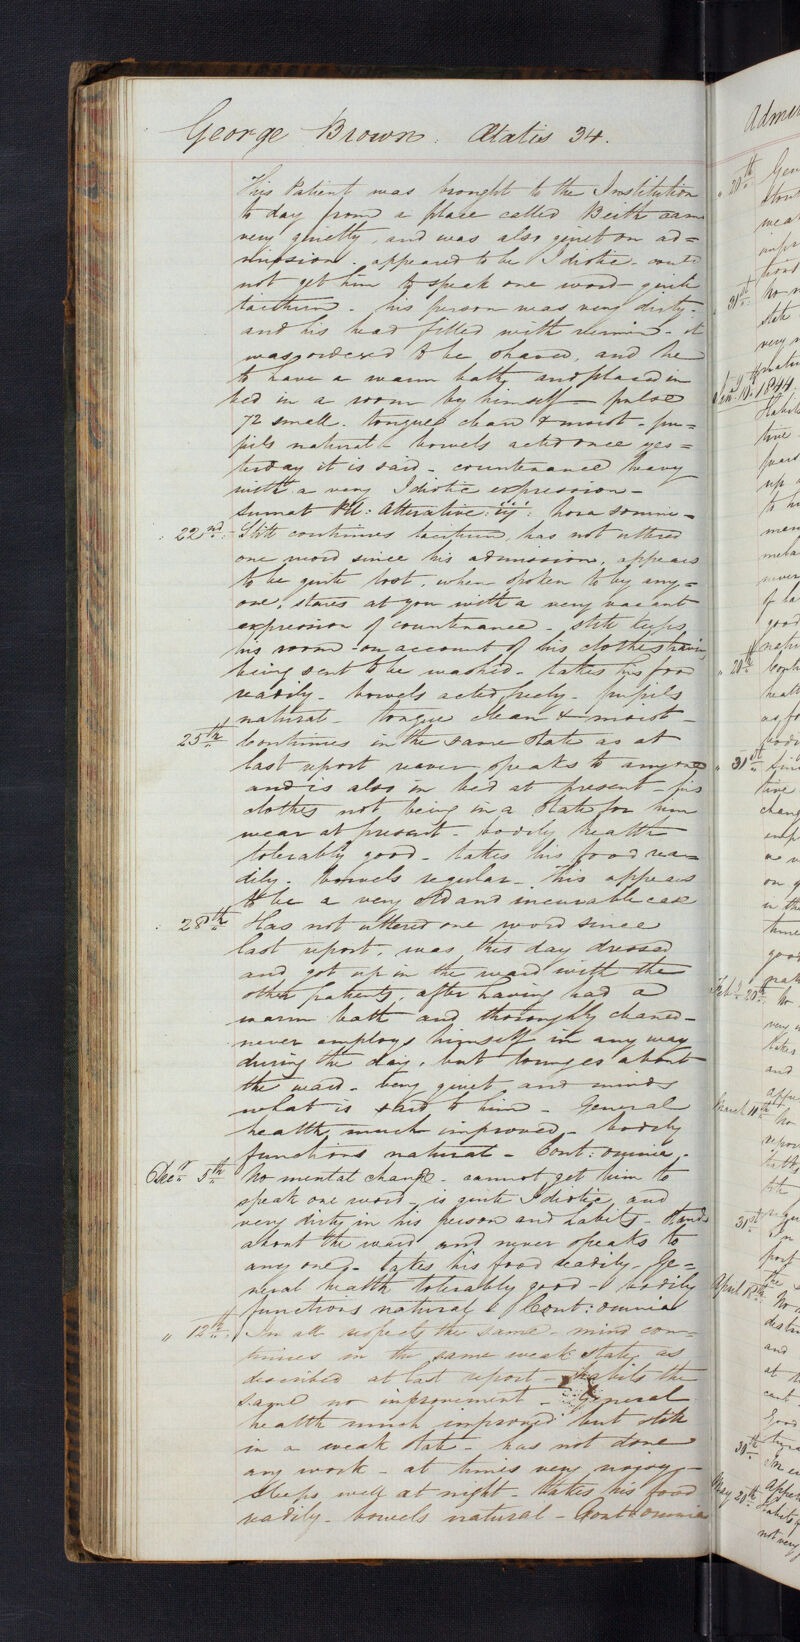 George Brown. Ætatis 34.
This Patient was brought to the Institution
to day from a place called Beith came
very quietly, and was also quiet on ad=
mission. appeared to be Idiotic - could
not get him to speak one word - quite
taciturn - his person was very dirty -
and his head filled with vermin - it
was ordered to be shaved, and he
to have a warm bath and placed in
bed in a room by himself - pulse
72 small. tongue clean & moist - pu=
pils natural - bowels acted once yes=
terday it is said - countenance heavy
with a very Idiotic expression -
Sumat Pil: Alterative: iij: hora somni -
22nd. Still continues taciturn, has not uttered
one word since his admission, appears
to be quite lost, when spoken to by any=
one, stares at you with a very vacant
expression of countenance - still keeps
his room - on account of his clothes having
being sent to be washed - takes his food
readily - bowels acted freely - pupils
natural - tongue clean & moist -
25th Continues in the same state as at
last report never speaks to any one
and is also in bed at present - his
clothes not being in a state for him
wear at present - bodily health
tolerably good - takes his food rea=
dily. bowels regular - This appears
to be a very old and incurable case
28th Has not uttered one word since
last report, was this day dressed
and got up in the ward with the
other patients, after having had a
warm bath and thoroughly cleaned -
never employs himself in any way
during the day, but lounges about
the ward - very quiet and minds
what is said to him - General
health much improved - bodily
functions natural - Cont: omnia -
Decr 5th No mental change - cannot get him to
speak one word - is quite Idiotic, and
very dirty in his person and habits - Stands
about the ward and never speaks to
any one - takes his food readily - Ge=
neral health tolerably good - bodily
functions natural & Cont: omnia
" 12th In all respects the same - mind con=
tinues in the same weak state as
described at last report - habits the
same no improvement - General
health much improved but still
in a weak state - has not done
any work - at times very noisy -
Sleeps well at night - takes his food
readily - bowels natural - Cont: omnia
20th
31st
1844.
20th
31st
20th
March 11th
31st
April 18th
30th
May 20th
not very